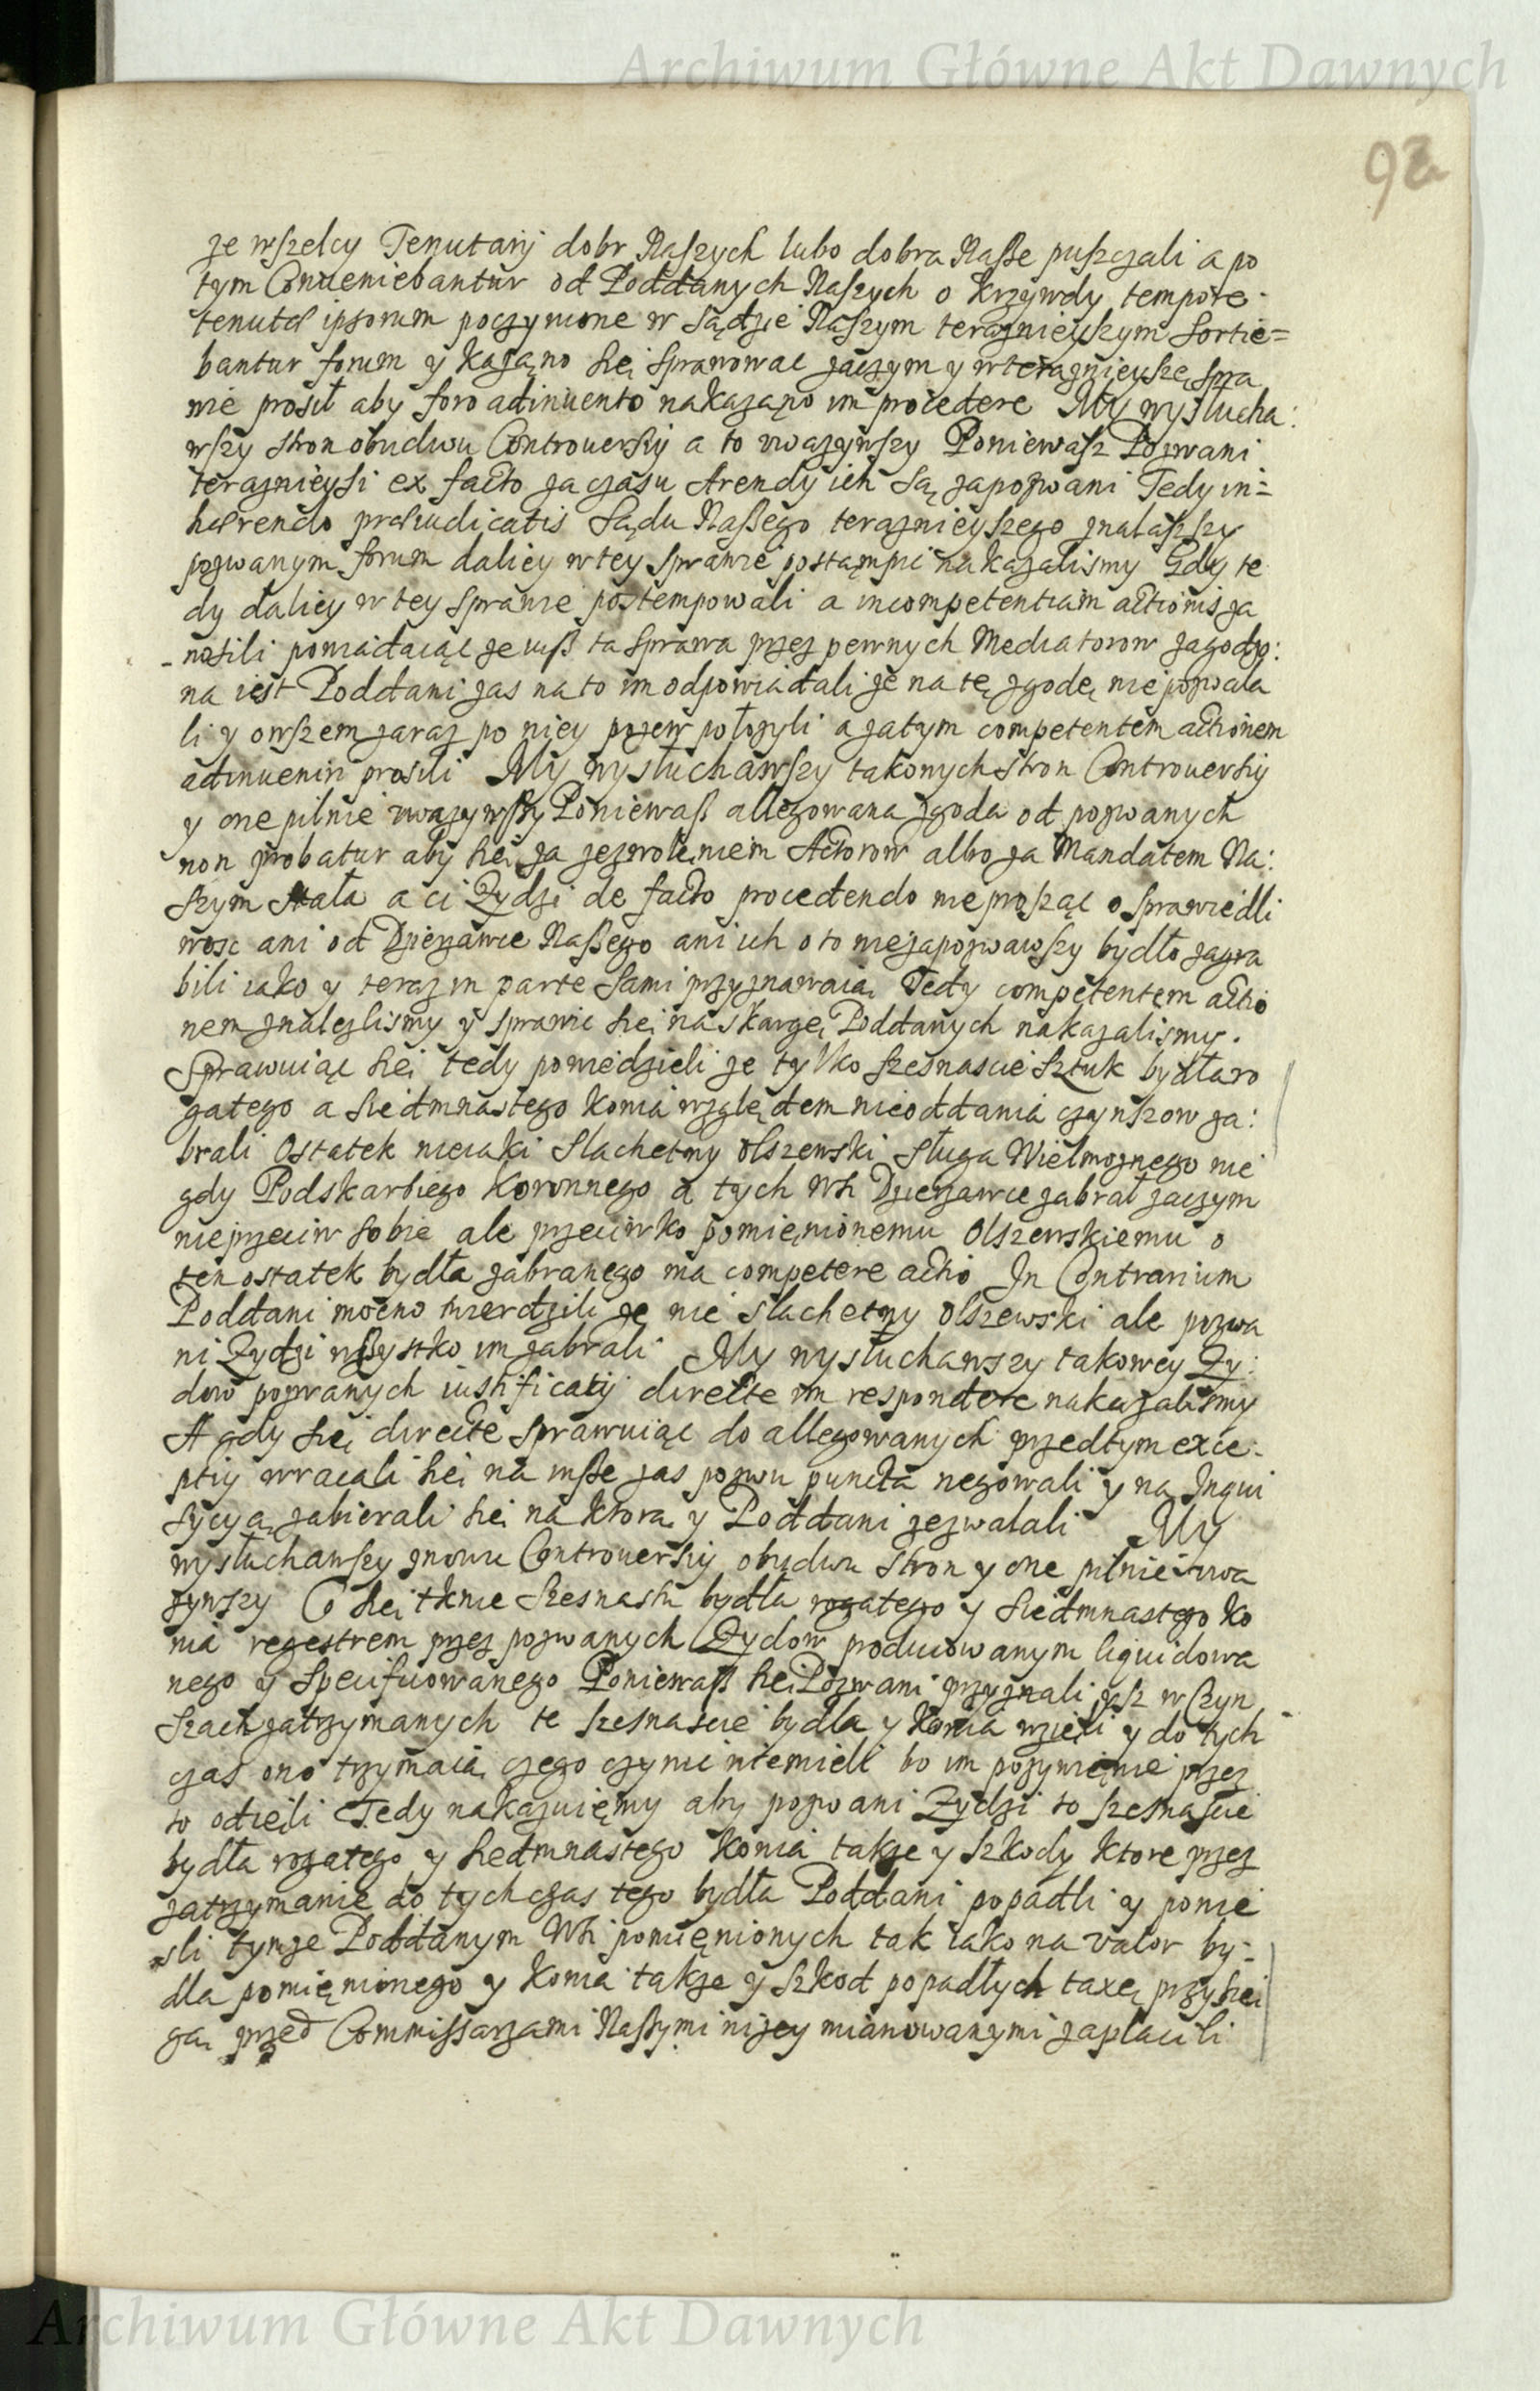 Archiwum Główne Akt Dawnych
92
ze wszelcy Tenutarij dobr Naszych lubo dobra Nasze puszczali a po
tym Conueniebantur od Poddanych Naszych o krzywdy tempore
tenutæ ipsorum poczynione w sądzie Naszym teraznieyszym sortie=
bantur forum y kazano się sprawowac zaczym y w teraznieyszę spra
wie prosił aby foro adinuento nakazano im procedere My wysłucha:
wszy stron obudwu Controuersiy a to vwazywszy Poniewasz Pozwani
teraznieysi ex facto za czasu Arendy ich są zapozwani Tedy in=
hærendo præiudicatis sądu Naszego teraznieyszego znalaszszy
pozwanym forum daliey w tey sprawie postąmpic nakazalismy Gdy te
dy daliey w tey sprawie postempowali a incompetentiam actionis za
nosili powiadaiąc ze iusz ta sprawa przez pewnych Mediatorow zagodzo:
na iest Poddani zas na to im odpowiadali ze na tę zgodę nie pozwala
li y owszem zaraz po niey pozew połozyli a zatym competentem actionem
adinueniri prosili My wysłuchawszy takowych stron Controuersiy
y one pilnie vwazywszy Poniewasz allegowana zgoda od pozwanych
non probatur aby się za zezwoleniem Actorow albo za Mandatem Na:
szym stała a ci Zydzi de facto procedendo nie prosząc o sprawiedli
wosc ani od Dzierzawce Naszego ani ich o to niezapozwawszy bydło zagra
bili iako y teraz in parte sami przyznawaią Tedy competentem actio
nem znalezlismy y sprawic się na skargę Poddanych nakazalismy.
Sprawuiąc się tedy powiedzieli ze tylko szesnascie sztuk bydła ro
gatego a siedmnastego konia względem nieoddania czynszow za:
brali Ostatek nieiaki Slachetny Olszewski sługa Wielmoznego nie
gdy Podskarbiego Koronnego a tych Wsi Dzierzawce zabrał zaczym
nie przeciw sobie ale przeciwko pomienionemu Olszewskiemu o
ten ostatek bydła zabranego ma competere actio In Contrarium
Poddani mocno twierdzili ze nie slachetny Olszewski ale pozwa
ni Zydzi wszystko im zabrali My wysłuchawszy takowey Zy:
dow pozwanych iustificatij directe im respondere nakazalismy
A gdy się directe sprawuiąc do allegowanych przedtym exce=
ptiy wracali się na insze zas pozwu puncta negowali y na Inqui
sycyą zabierali się na ktorą y Poddani zezwalali My
wysłuchawszy znowu Controuersiy obudwu stron y one pilnie vwa
zywszy Co się tknie szesnastu bydła rogatego y siedmnastego ko
nia regestrem przez pozwanych Zydow producowanym liquidowa
nego y specificowanego Poniewasz się Pozwani przyznali isz w Czyn
szach zatrzymanych te szesnascie bydła y konia wzięli y do tych
czas ono trzymaią czego czynic niemieli bo im pozywienie przez
to odięli Tedy nakazuiemy aby pozwani Zydzi to szesnascie
bydła rogatego y siedmnastego konia takze y szkody ktore przez
zatrzymanie do tych czas tego bydła Poddani popadli y ponie
sli tymze Poddanym Wsi pomienionych tak iako na valor by=
dla pomienionego y konia takze y szkod popadłych taxę przysię
gą przed Commissarzami Naszymi nizey mianowanymi zapłacili
Archiwum Główne Akt Dawnych